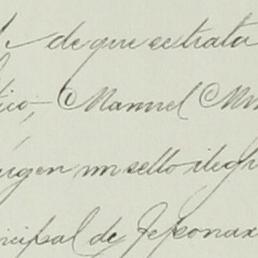 de que se trata
lico, Manuel Mu
un sello ilegi
nicipal de Jesonax